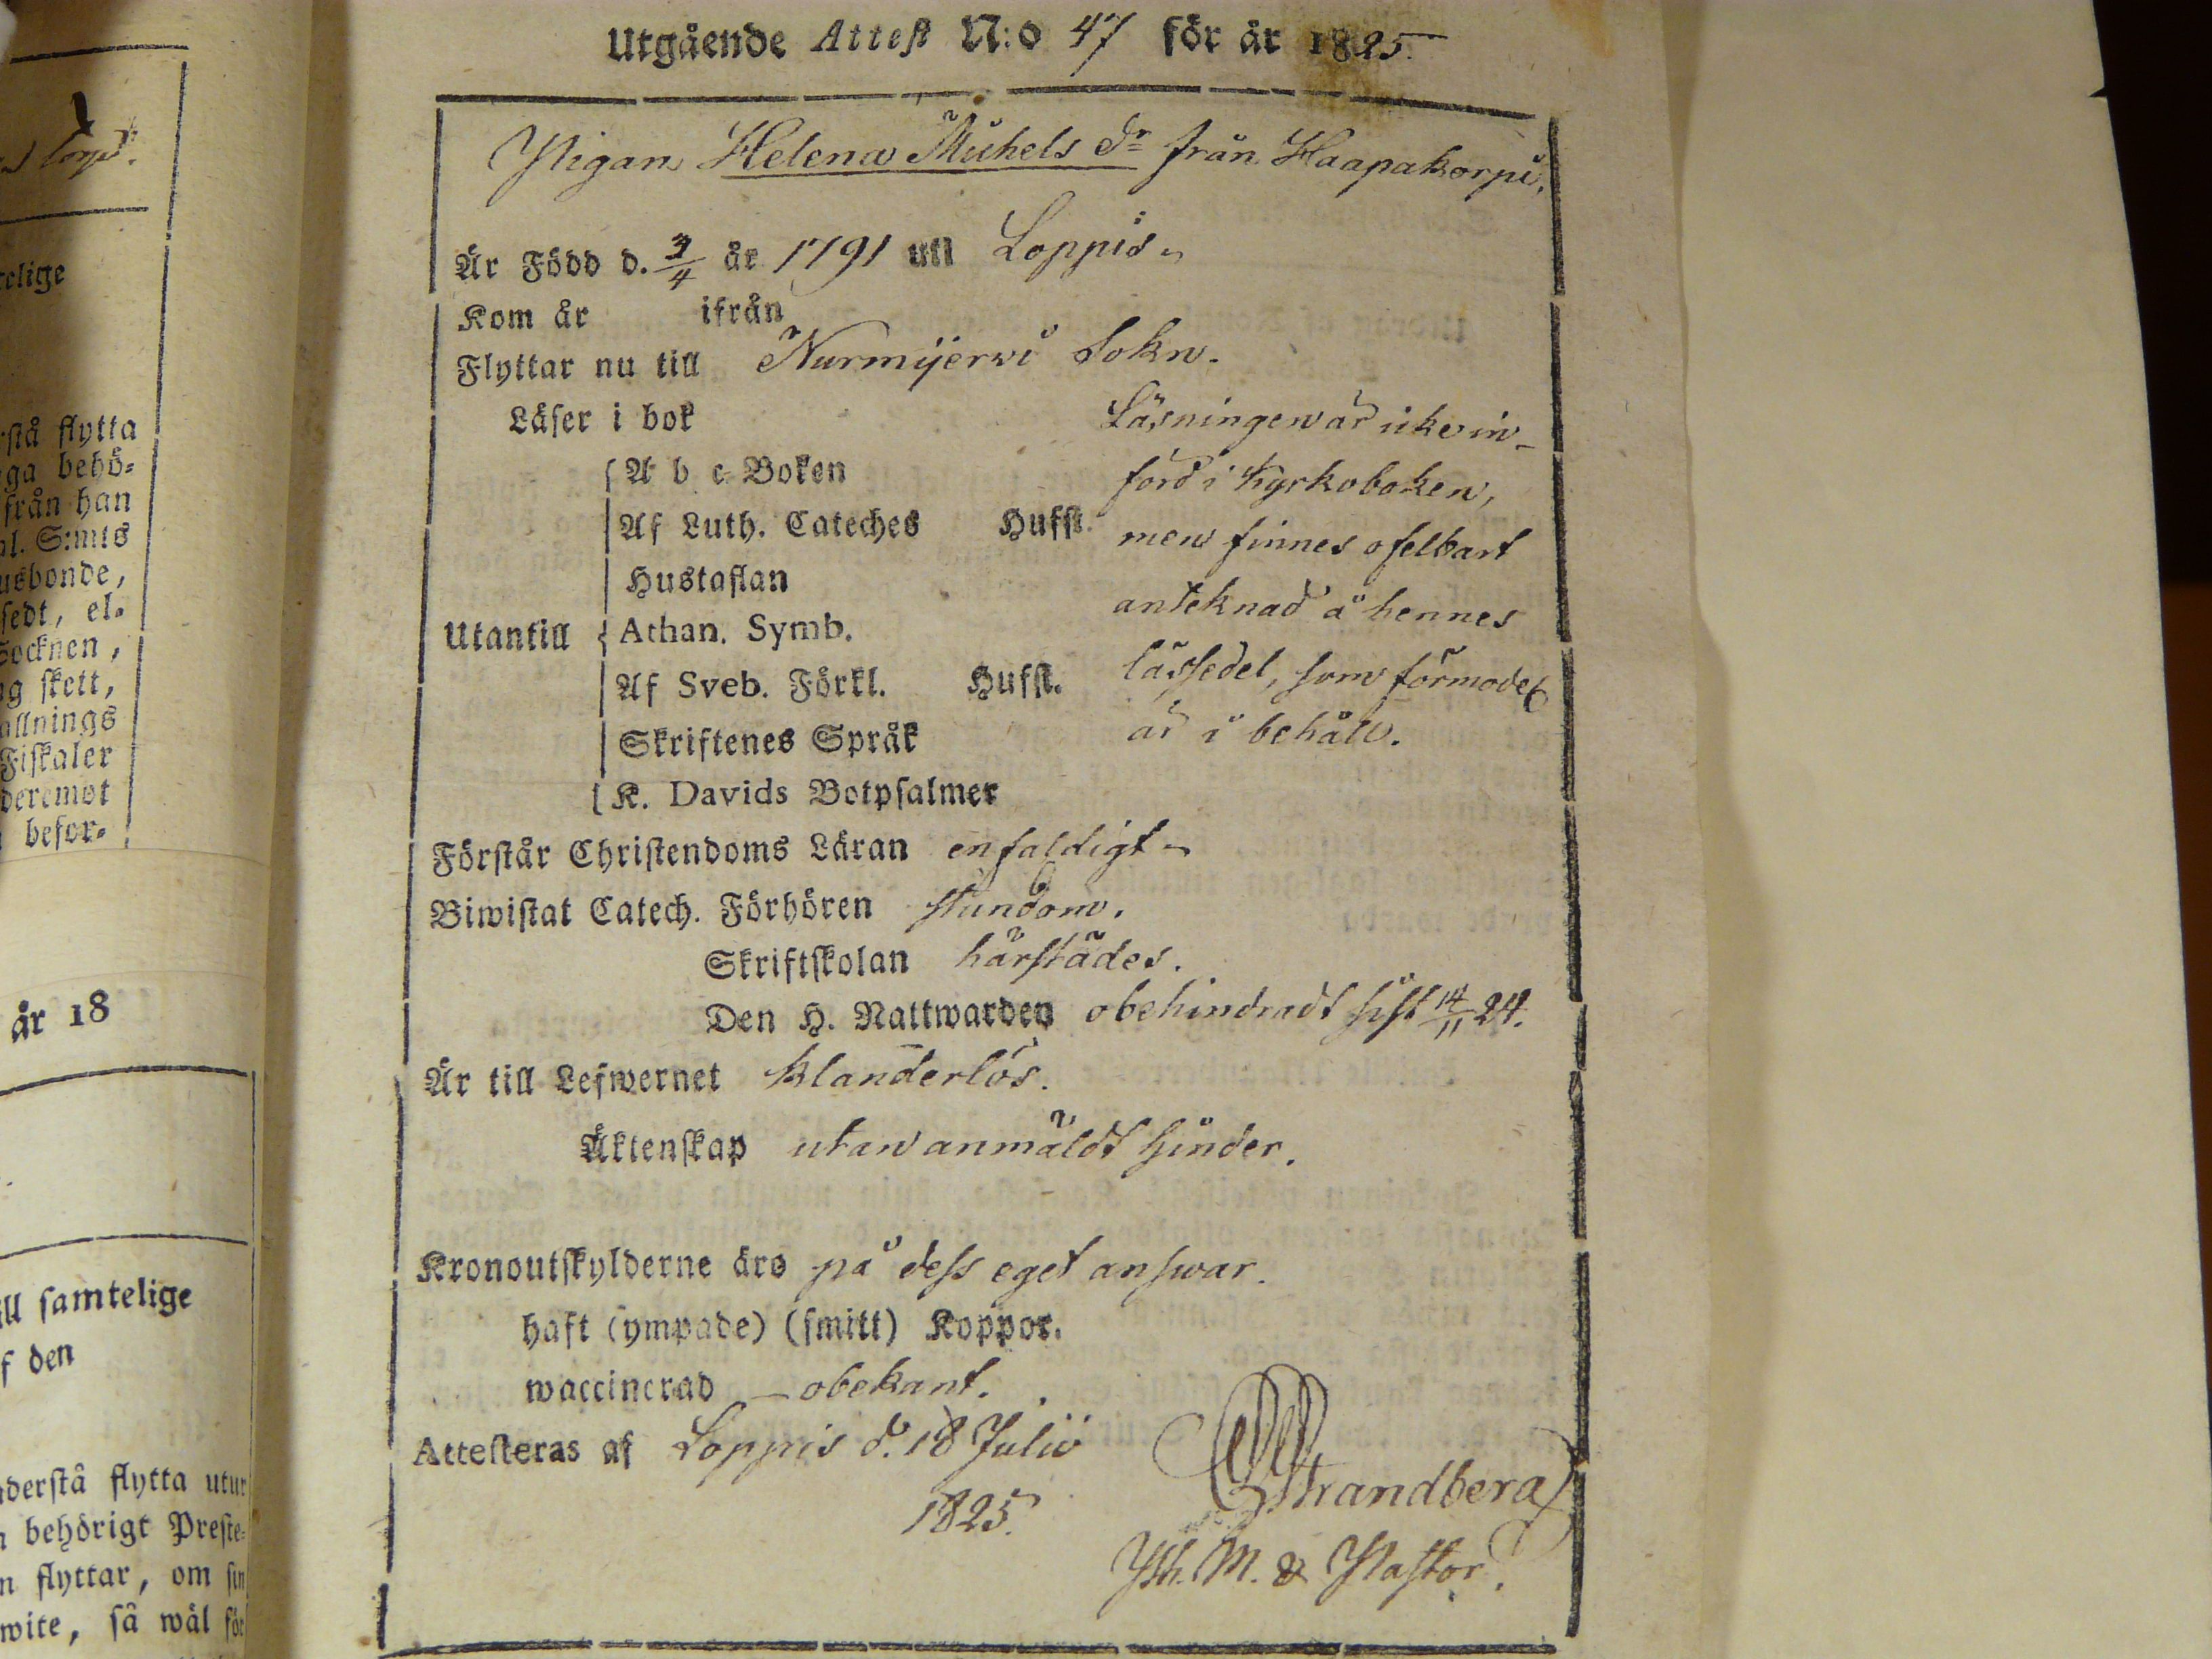 Utgående Attest N:o 47 för år 1825.
Pigan Helena Michels dr från Haapakorpi.
Är Född d. 3/4 år 1791 uti Loppis
Kom år ifrån
Flyttar nu till Nurmijerwi Sokn.
Läser i bok
A b c Boken
Af Luth. Cateches Hufst.
Hustaflan
Utantill Athan. Symb.
Af Sveb. Förkl. Hufst.
Skriftenes Språk
K. Davids Botpsalmer
Läsningen är icke in-
förd i Kyrkoboken,
men finnes ofelbart
anteknad å hennes
lässedel, som förmodel.
är i behåll.
Förstår Christendoms Läran enfaldigt
Biwistat Catech. Förhören stundom.
Skriftskolan härstädes.
Den H. Nattwarden obehindradt sist 14/11 24.
Är till Lefwernet klanderlös.
Äktenskap utan anmäldt hinder.
Kronoutskylderne äro på dess eget answar.
haft (ympade) (smitt) Koppor.
waccinerad — obekant.
Attesteras af Loppis d. 18 Julii
1825.
Strandberg
Ph. M. & Pastor.
telige
rstå flytta
ga behö-
från han
al. S:mts
usbonde,
sedt, el-
Socknen,
ng skett,
allnings
Fiskaler
deremot
befor-
år 18
ill samtelige
f den
derstå flytta utur
behörigt Preste-
n flyttar, om sin
wite, så wäl för